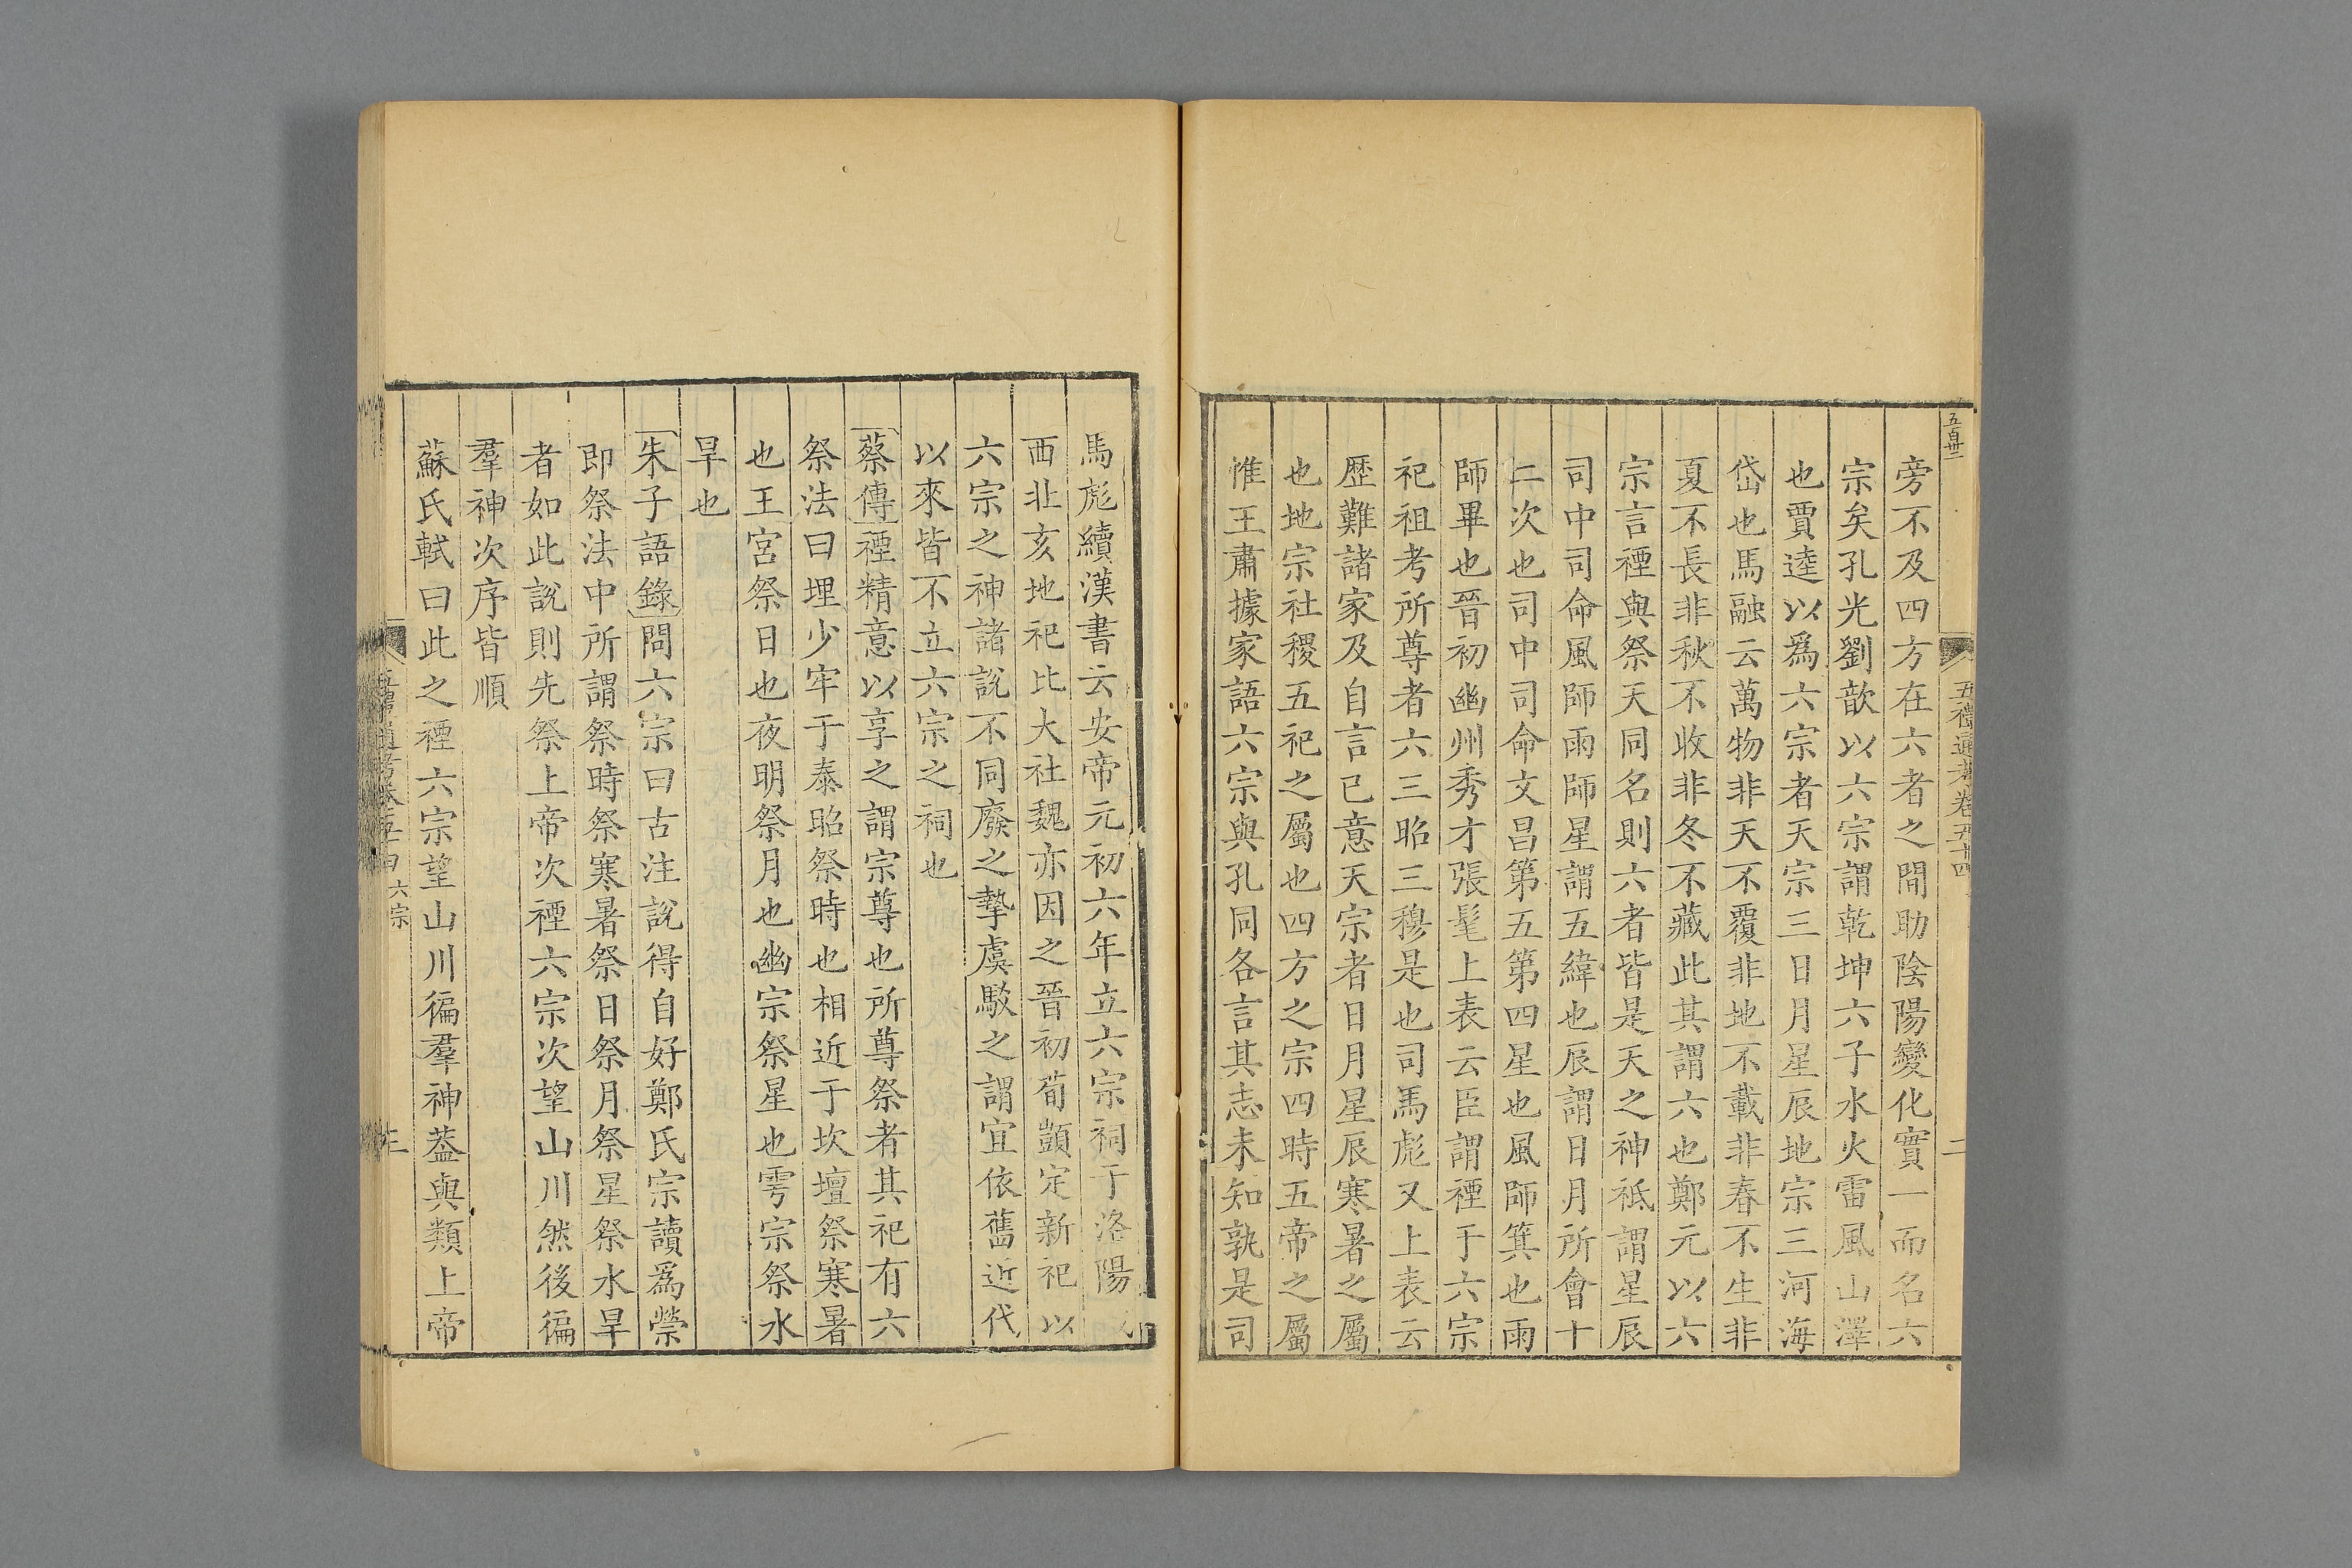 五百卅二
五禮通考卷五十四
二
旁不及四方在六者之閒助陰陽變化實一而名六
宗矣孔光劉歆以六宗謂乾坤六子水火雷風山澤
也賈逵以爲六宗者天宗三日月星辰地宗三河海
岱也馬融云萬物非天不覆非地不載非春不生非
夏不長非秋不收非冬不藏此其謂六也鄭元以六
宗言禋與祭天同名則六者皆是天之神祇謂星辰
司中司命風師雨師星謂五緯也辰謂日月所會十
二次也司中司命文昌第五第四星也風師箕也雨
師畢也晉初幽州秀才張髦上表云臣謂禋于六宗
祀祖考所尊者六三昭三穆是也司馬彪又上表云
歷難諸家及自言己意天宗者日月星辰寒暑之屬
也地宗社稷五祀之屬也四方之宗四時五帝之屬
惟王肅據家語六宗與孔同各言其志未知孰是司
馬彪續漢書云安帝元初六年立六宗祠于洛陽
西北亥地祀比大社魏亦因之晉初荀顗定新祀以
六宗之神諸說不同廢之摯虞駁之謂宜依舊近代
以來皆不立六宗之祠也
蔡傳禋精意以享之謂宗尊也所尊祭者其祀有六
祭法曰埋少牢于泰昭祭時也相近于坎壇祭寒暑
也王宮祭日也夜明祭月也幽宗祭星也雩宗祭水
旱也
朱子語錄問六宗曰古注說得自好鄭氏宗讀爲禜
即祭法中所謂祭時祭寒暑祭日祭月祭星祭水旱
者如此說則先祭上帝次禋六宗次望山川然後徧
羣神次序皆順
蘇氏軾曰此之禋六宗望山川徧羣神葢與類上帝
六宗